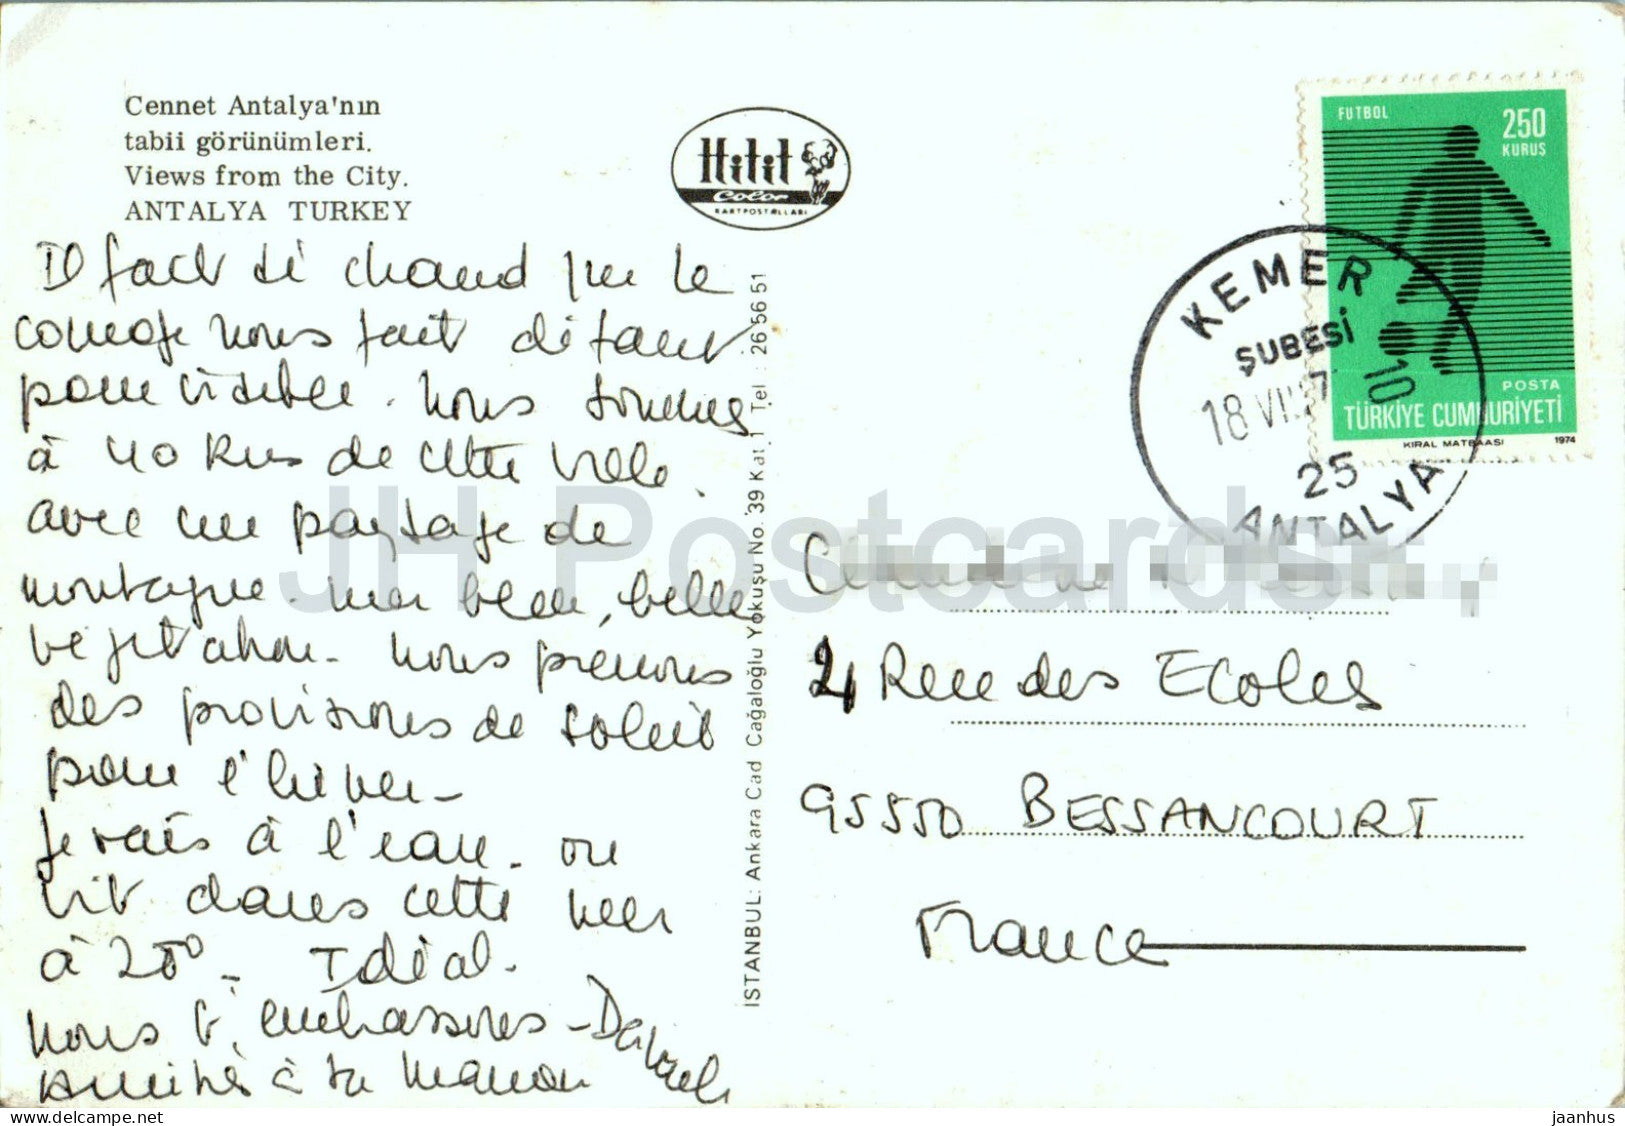 Cennet Antalya'nın
tabii görünümleri.
Views from the City.
ANTALYA TURKEY
Hitit
Color
KARTPOSTALLARI
Il fait si chaud que le
courage nous fait défaut
pour visiter. Nous sommes
à 40 Kms de cette ville.
avec un paysage de
montagne. mer bleue, belle
végétation. Nous prenons
des provisions de soleil
pour l'hiver.
Je vais à l'eau. on
vit dans cette mer
à 25°. Idéal.
Nous t'embrassons -
Amitiés à ta maman
İSTANBUL: Ankara Cad Cağaloğlu Yokuşu No. 39 Kat 1 Tel : 26 56 51
FUTBOL
250
KURUŞ
POSTA
TÜRKİYE CUMHURİYETİ
KIRAL MATBAASI 1974
KEMER
ŞUBESİ
18 VII 7 10
25
ANTALYA
JH Postcards
Rue des Ecoles
95550 BESSANCOURT
France
jaanhus